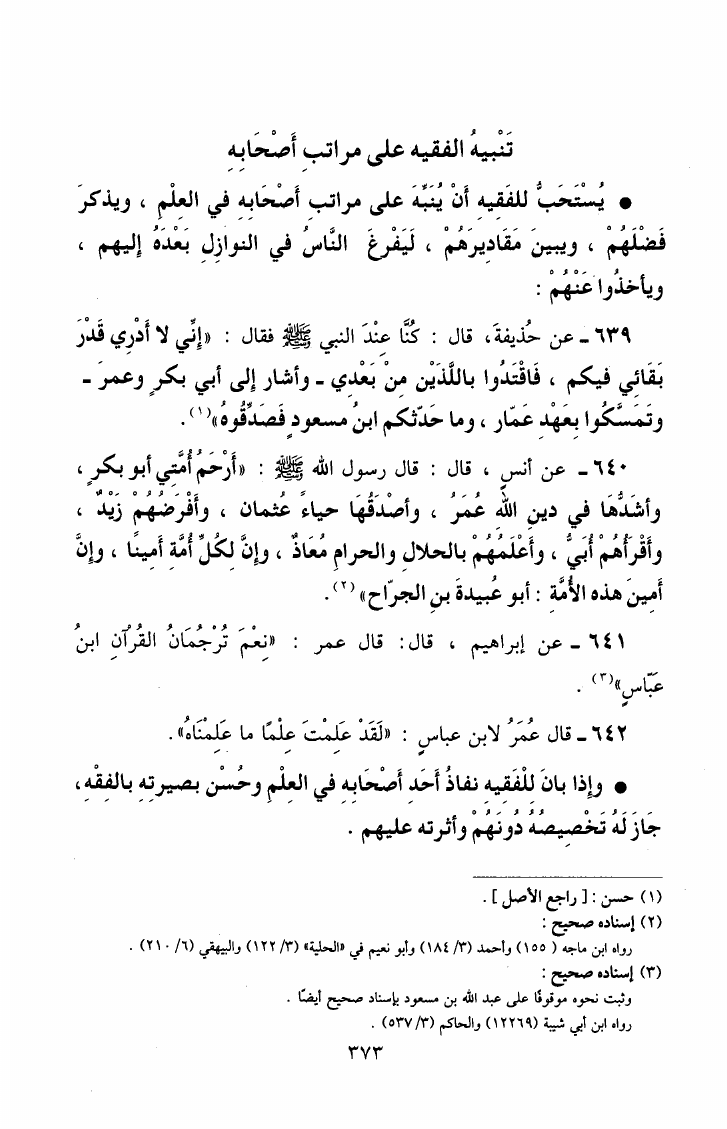 تَنْبيهُ الفقيه على مراتبِ أَصْحَابِهِ
● يُسْتَحَبُّ للفَقِيهِ أَنْ يُنَبِّهَ على مراتب أَصْحَابِهِ في العِلْمِ ، ويذكرَ
فَضْلَهُمْ ، ويبينَ مَقَادِيرَهُمْ ، لَيَفْرغَ النَّاسُ في النوازِلِ بَعْدَهُ إليهم ،
ويأخذُوا عَنْهُمْ :
٦٣٩ ـ عن حُذيفةَ، قال : كُنَّا عِنْدَ النبي ﷺ فقال : «إنِّي لا أَدْرِي قَدْرَ
بَقَائِي فيكم ، فَاقْتَدُوا باللَّذَيْنِ مِنْ بَعْدي ـ وأشار إلى أبي بكرٍ وعمرَ ـ
وتَمَسَّكُوا بِعَهْدِ عَمّار ، وما حَدّثكم ابنُ مسعودٍ فَصَدِّقُوهُ»(١).
٦٤٠ ـ عن أنسٍ ، قال : قال رسول الله ﷺ : «أَرْحَمُ أُمَّتي أبو بكرٍ ،
وأشدُّهَا في دينِ اللَّهِ عُمَرُ ، وأصْدَقُهَا حياءً عُثمان ، وأَفْرَضُهُمْ زَيْدٌ ،
وأَقْرَأُهُمْ أُبَيُّ ، وأَعْلَمُهُمْ بالحلالِ والحرامِ مُعَاذٌ ، وإنَّ لِكُلِّ أُمَّةٍ أمينًا ، وإنَّ
أمينَ هذه الأُمَّةِ : أبو عُبيدةَ بنِ الجراح»(٢).
٦٤١ ـ عن إبراهيم ، قال: قال عمر : «نِعْمَ تَرْجُمَانُ القُرآنِ ابنُ
عَبّاسٍ»(٣) .
٦٤٢ ـ قال عُمَرُ لابن عباسٍ : «لَقَدْ عَلِمْتَ عِلْمًا ما عَلِمْنَاهُ».
● وإذا بانَ لِلْفَقيهِ نفاذُ أَحَدِ أَصْحَابِهِ في العِلْمِ وحُسْنِ بصيرتِهِ بالفِقْهِ،
جَازَ لَهُ تَخْصِيصُهُ دُونَهُمْ وأثرته عليهم .
(١) حسن : [ راجع الأصل ] .
(٢) إسناده صحيح :
رواه ابن ماجه ( ١٥٥) وأحمد (٣/ ١٨٤) وأبو نعيم في «الحلية» (٣/ ١٢٢) والبيهقي (٦/ ٢١٠) .
(٣) إسناده صحيح :
وثبت نحوه موقوفًا على عبد الله بن مسعود بإسناد صحيح أيضًا .
رواه ابن أبي شيبة (١٢٢٦٩) والحاكم (٣/ ٥٣٧) .
٣٧٣